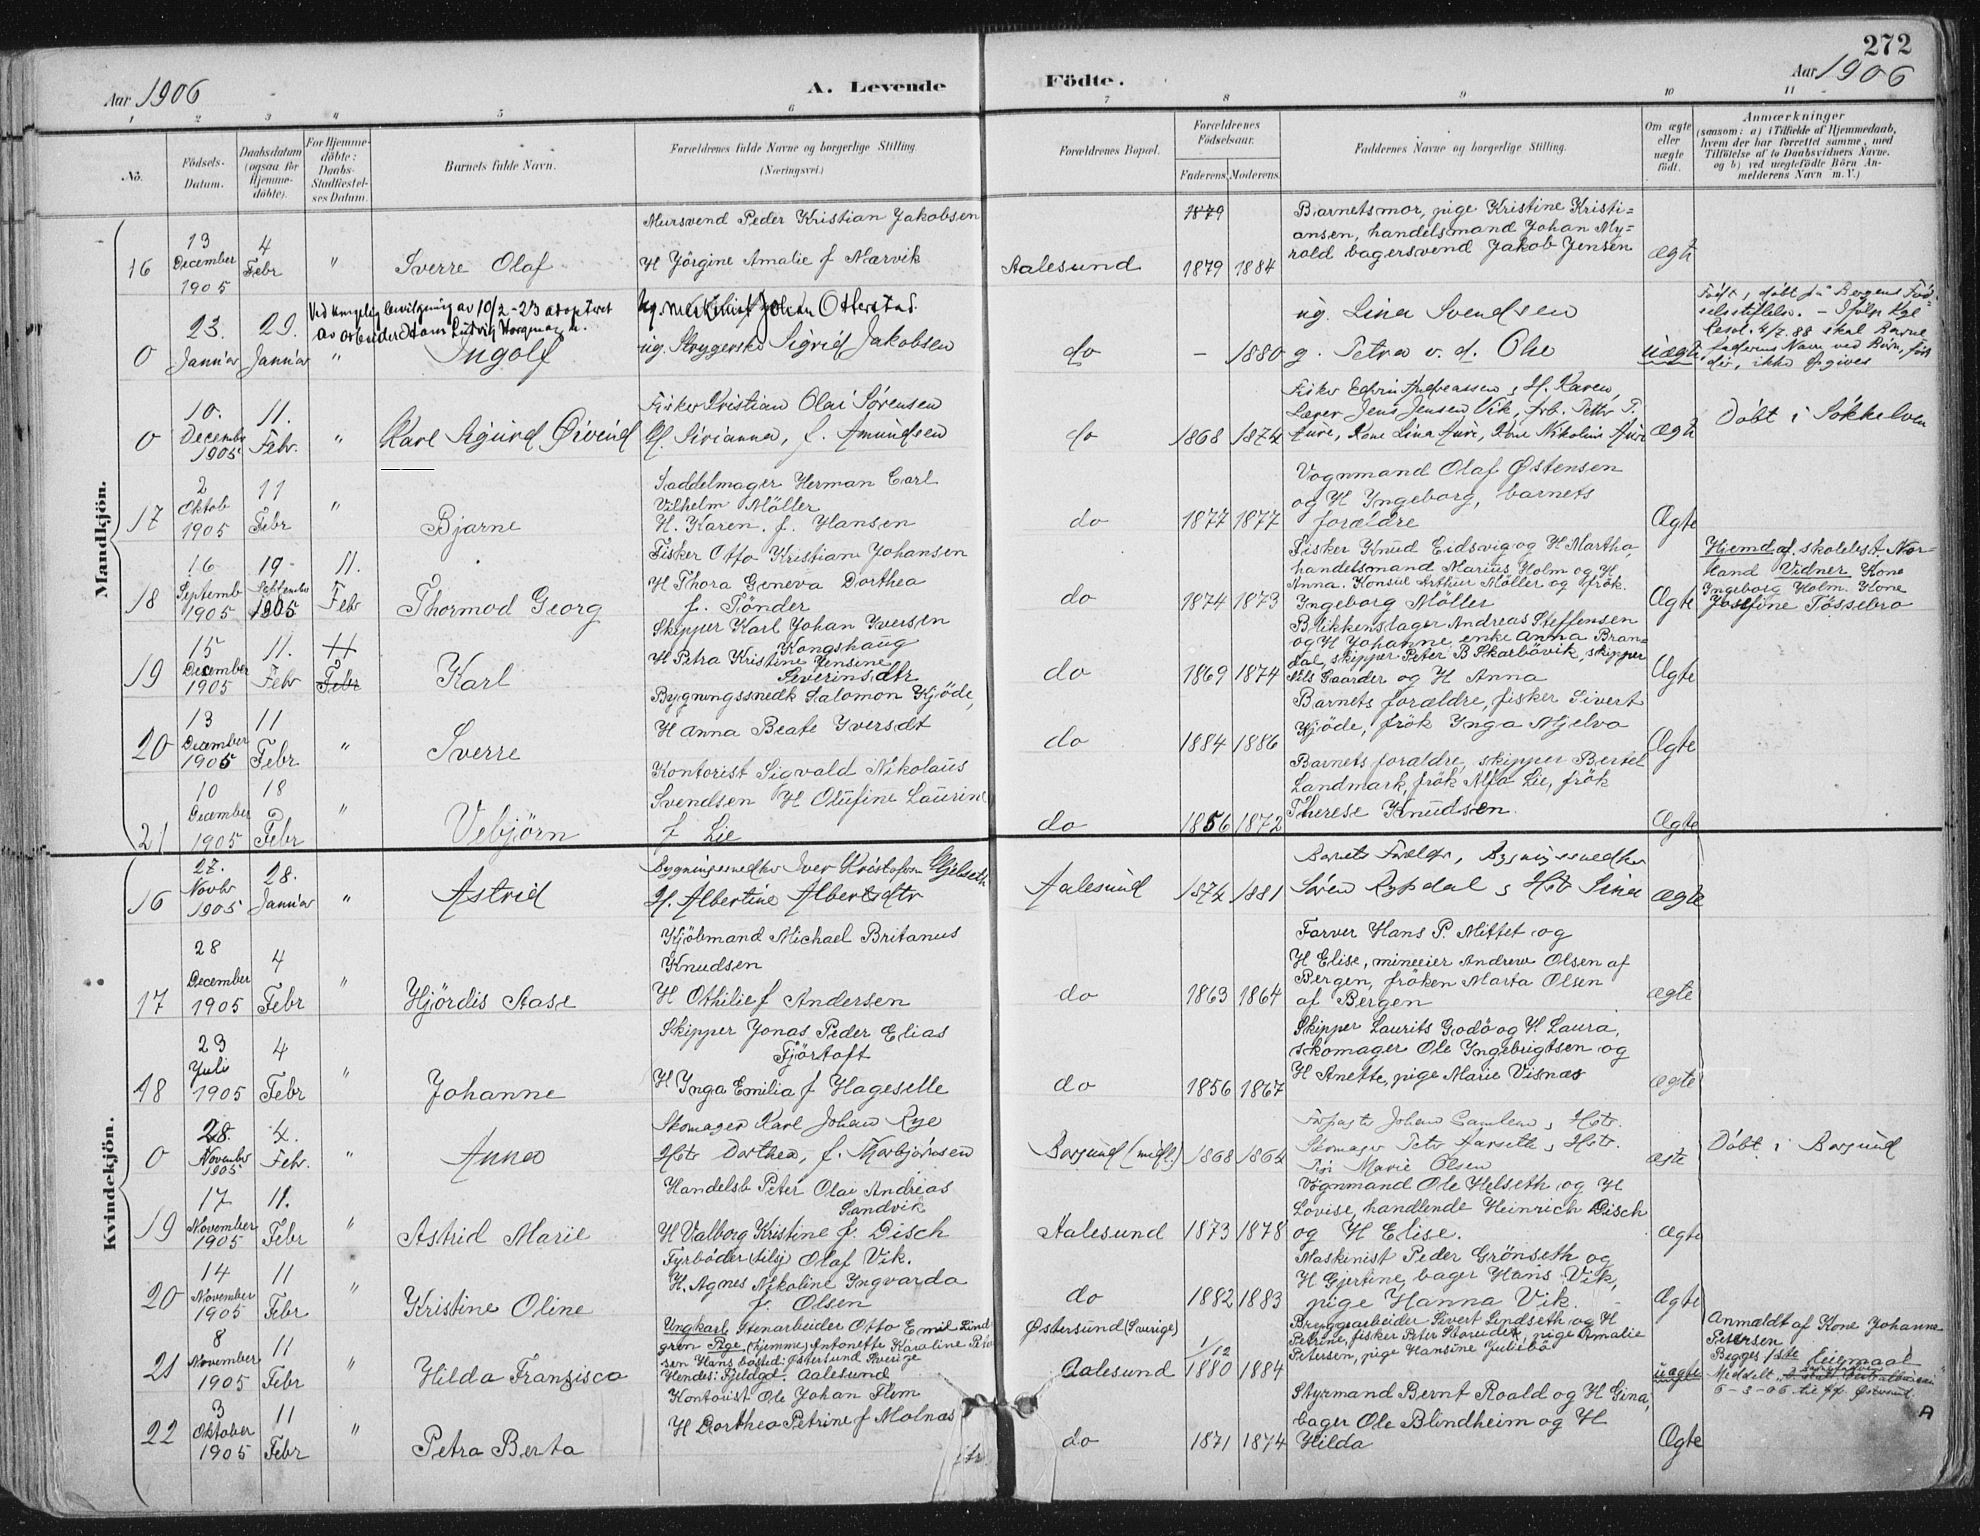 272
Aar 1906
A. Levende
Födte.
Aar 1906
1 2 3 4 5 6 7 8 9 10 11
No.
Födsels-Datum.
Daabsdatum (ogsaa for Hjemme-döbte).
For Hjemme-döbte: Daabs-Stadfæstelses Datum.
Barnets fulde Navn.
Forældrenes fulde Navne og borgerlige Stilling (Næringsvei.)
Forældrenes Bopæl.
Forældrenes Födselsaar.
Faderens. Moderens.
Faddernes Navne og borgerlige Stilling.
Om ægte eller uægte födt.
Anmærkninger
(saasom: a) i Tilfælde af Hjemmedaab, hvem der har forrettet samme, med Tilföielse af to Daabsvidners Navne. og b) ved uægtefödte Börn Anmelderens Navn m. V.)
Mandkjön.
16
13 December 1905
4 Febr
"
Sverre Olaf
Mursvend Peder Kristian Jakobsen
H Jörgine Amalie f Marvik
Aalesund
1879
1879 1884
Barnetsmor, pige Kristine Kristi=
ansen, handelsmand Johan My=
rold bagersvend Jakob Jensen
Ægte
0
23. Januar
29. Januar
"
Ved kongelig bevilgning av 10/2-23 adopteret
av arbeider Hans Ludvig
Ingolf
ug. Maskinist Johan Otterstad.
ug. Strygerske Sigrid Jakobsen
do
- 1880
ug. Lina Svendsen
g. Petra v. d. Ohe
uægte
Født, døbt på Bergens Fød-
selsstiftelse. - Ifølge Kgl
Resol. 4/7.88 skal Barne
faderens Navn ved Börn, født
der, ikke opgives
0
10. Decembr 1905
11. Febr.
"
Karl Sigurd Øivind
Fisker Kristian Olai Sørensen
H. Sirianna, f. Amundsen
do
1868 1874
Fisker Edvin Andreassen, H. Karen,
Lærer Jens Jensen Vik, frb. Petter P.
Aure, Kone Lina Aure, Kone Nikoline Aure
Ægte
Døbt i Søkkelven
17
2 Oktob 1905
11 Febr
"
Bjarne
Saddelmager Herman Carl
Vilhelm Möller
H. Karen. f. Hansen
do
1877 1877
Vognmand Olaf Østensen
og H Ingeborg, barnets
forældre
Ægte
18
16 Septemb 1905
19 September 1905
11. Febr
Thormod Georg
Fisker Otto Kristian Johansen
H Thora Geneva Dorthea
f. Tönder
do
1874 1873
Fisker Knud Eidsvig og H Martha,
handelsmand Marius Holm og H
Anna. Konsul Arthur Möller og frök.
Ingeborg Möller
Ægte
Hjemd af. skolebest. Nor-
land Vidner Kone
Ingeborg Holm. Kone
Josefine Tössebro
19
15 December 1905
11. Febr
11 Febr
Karl
Skipper Karl Johan Iversen
Kongshaug
H Petra Kristine Jensine
Severinsdtr
do
1869 1874
Blikkenslager Andreas Steffensen
og H Johanne, enke Anna Bran=
dal, skipper Peter B Skarbövik, skipper
Nils Gaarder og H Anna
Ægte
20
13 December 1905
11 Febr
"
Sverre
Bygningssnedk Salomon Kjöde,
H Anna Beate Iversdt
do
1884 1886
Barnets forældre, fisker Sivert
Kjöde, frök Inga Mjelva
Ægte
21
10 December 1905
18 Febr
"
Vebjörn
Kontorist Sigvald Nikolaus
Svendsen H Olufine Laurine
f Lie
do
1856 1872
Barnets forældre, skipper Bertel
Landmark, frök Alfa Lie, frök
Therese Knudsen.
Ægte
Kvindekjön.
16
27. Novbr 1905
28. Januar
"
Astrid
Bygningssnedker Iver Kristofersen Gjelseth
H. Albertine Albertsdtr
Aalesund
1874 1881
Barnets Forældr, Bygningssnedker
Sören Rypdal, Hst Sina
ægte
17
28 December 1905
4 Febr
"
Hjördis Aase
Kjöbmand Michael Britanus
Knudsen
H Othilie f Andersen
do
1863 1864
Farver Hans P. Mittet og
H Elise, mineeier Andrew Olsen af
Bergen, fröken Marta Olsen
af Bergen
ægte
18
23 Juli 1905
4 Febr
"
Johanne
Skipper Jonas Peder Elias
Fjörtoft
H Inga Emilia f Hageselle
do
1856 1867
Skipper Laurits Godö og H. Laura,
skomager Ole Ingebrigtsen og
H Anette, pige Marie Visnæs
ægte
0
28. Novembr 1905
4. Febr.
"
Anna
Skomager Karl Johan Rye
Hstr Dorthea, f. Thorbjørnsen
Borgund (midl.)
1868 1864
Forpagter Johan Gamlem, Hstr.
Skomager Petr Aarseth, Hstr.
Pige Marie Olsen
ægte
Døbt i Borgund
19
17 November 1905
11. Febr
"
Astrid Marie
Handelsb Peter Olai Andreas
Sandvik
H Valborg Kristine f. Disch
Aalesund
1873 1878
Vognmand Ole Helseth og H
Lovise, handlende Heinrich Disch
og H Elise.
ægte
20
14 November 1905
11 Febr
"
Kristine Oline
Fyrböder tilsj Olaf Vik.
H. Agnes Nikoline Ingvarda
f. Olsen
do
1882 1883
Maskinist Peder Grönseth og
H Gjertine, bager Hans Vik,
pige Hanna Vik.
Ægte
21
8 November 1905
11 Febr
"
Hilda Franzisca
Ungkarl Stenarbeider Otto Emil Lind-
gren Pige (hjemme) Antonette Karoline Peter
sen Hans bosted: Østersund Sverige
Hendes: Fjeldgd. Aalesund
Østersund (Sverige)
Aalesund
1/12
1880 1884
Bryggearbeider Sivert Lindseth og H
Petrine, fisker Peter Storeide, pige Amalie
Petersen, pige Hansine Juliebö
uægte
Anmeldt af Kone Johanne
Petersen
Begges 1ste leiermaal
Meddelt
6-3-06 til
22
3 Oktober 1905
11 Febr
"
Petra Berta
Kontorist Ole Johan Flem
H Dorthea Petrine f Molnæs
do
1871 1874
Styrmand Bernt Roald og H Gina,
bager Ole Blindheim og H
Hilda
Ægte
A